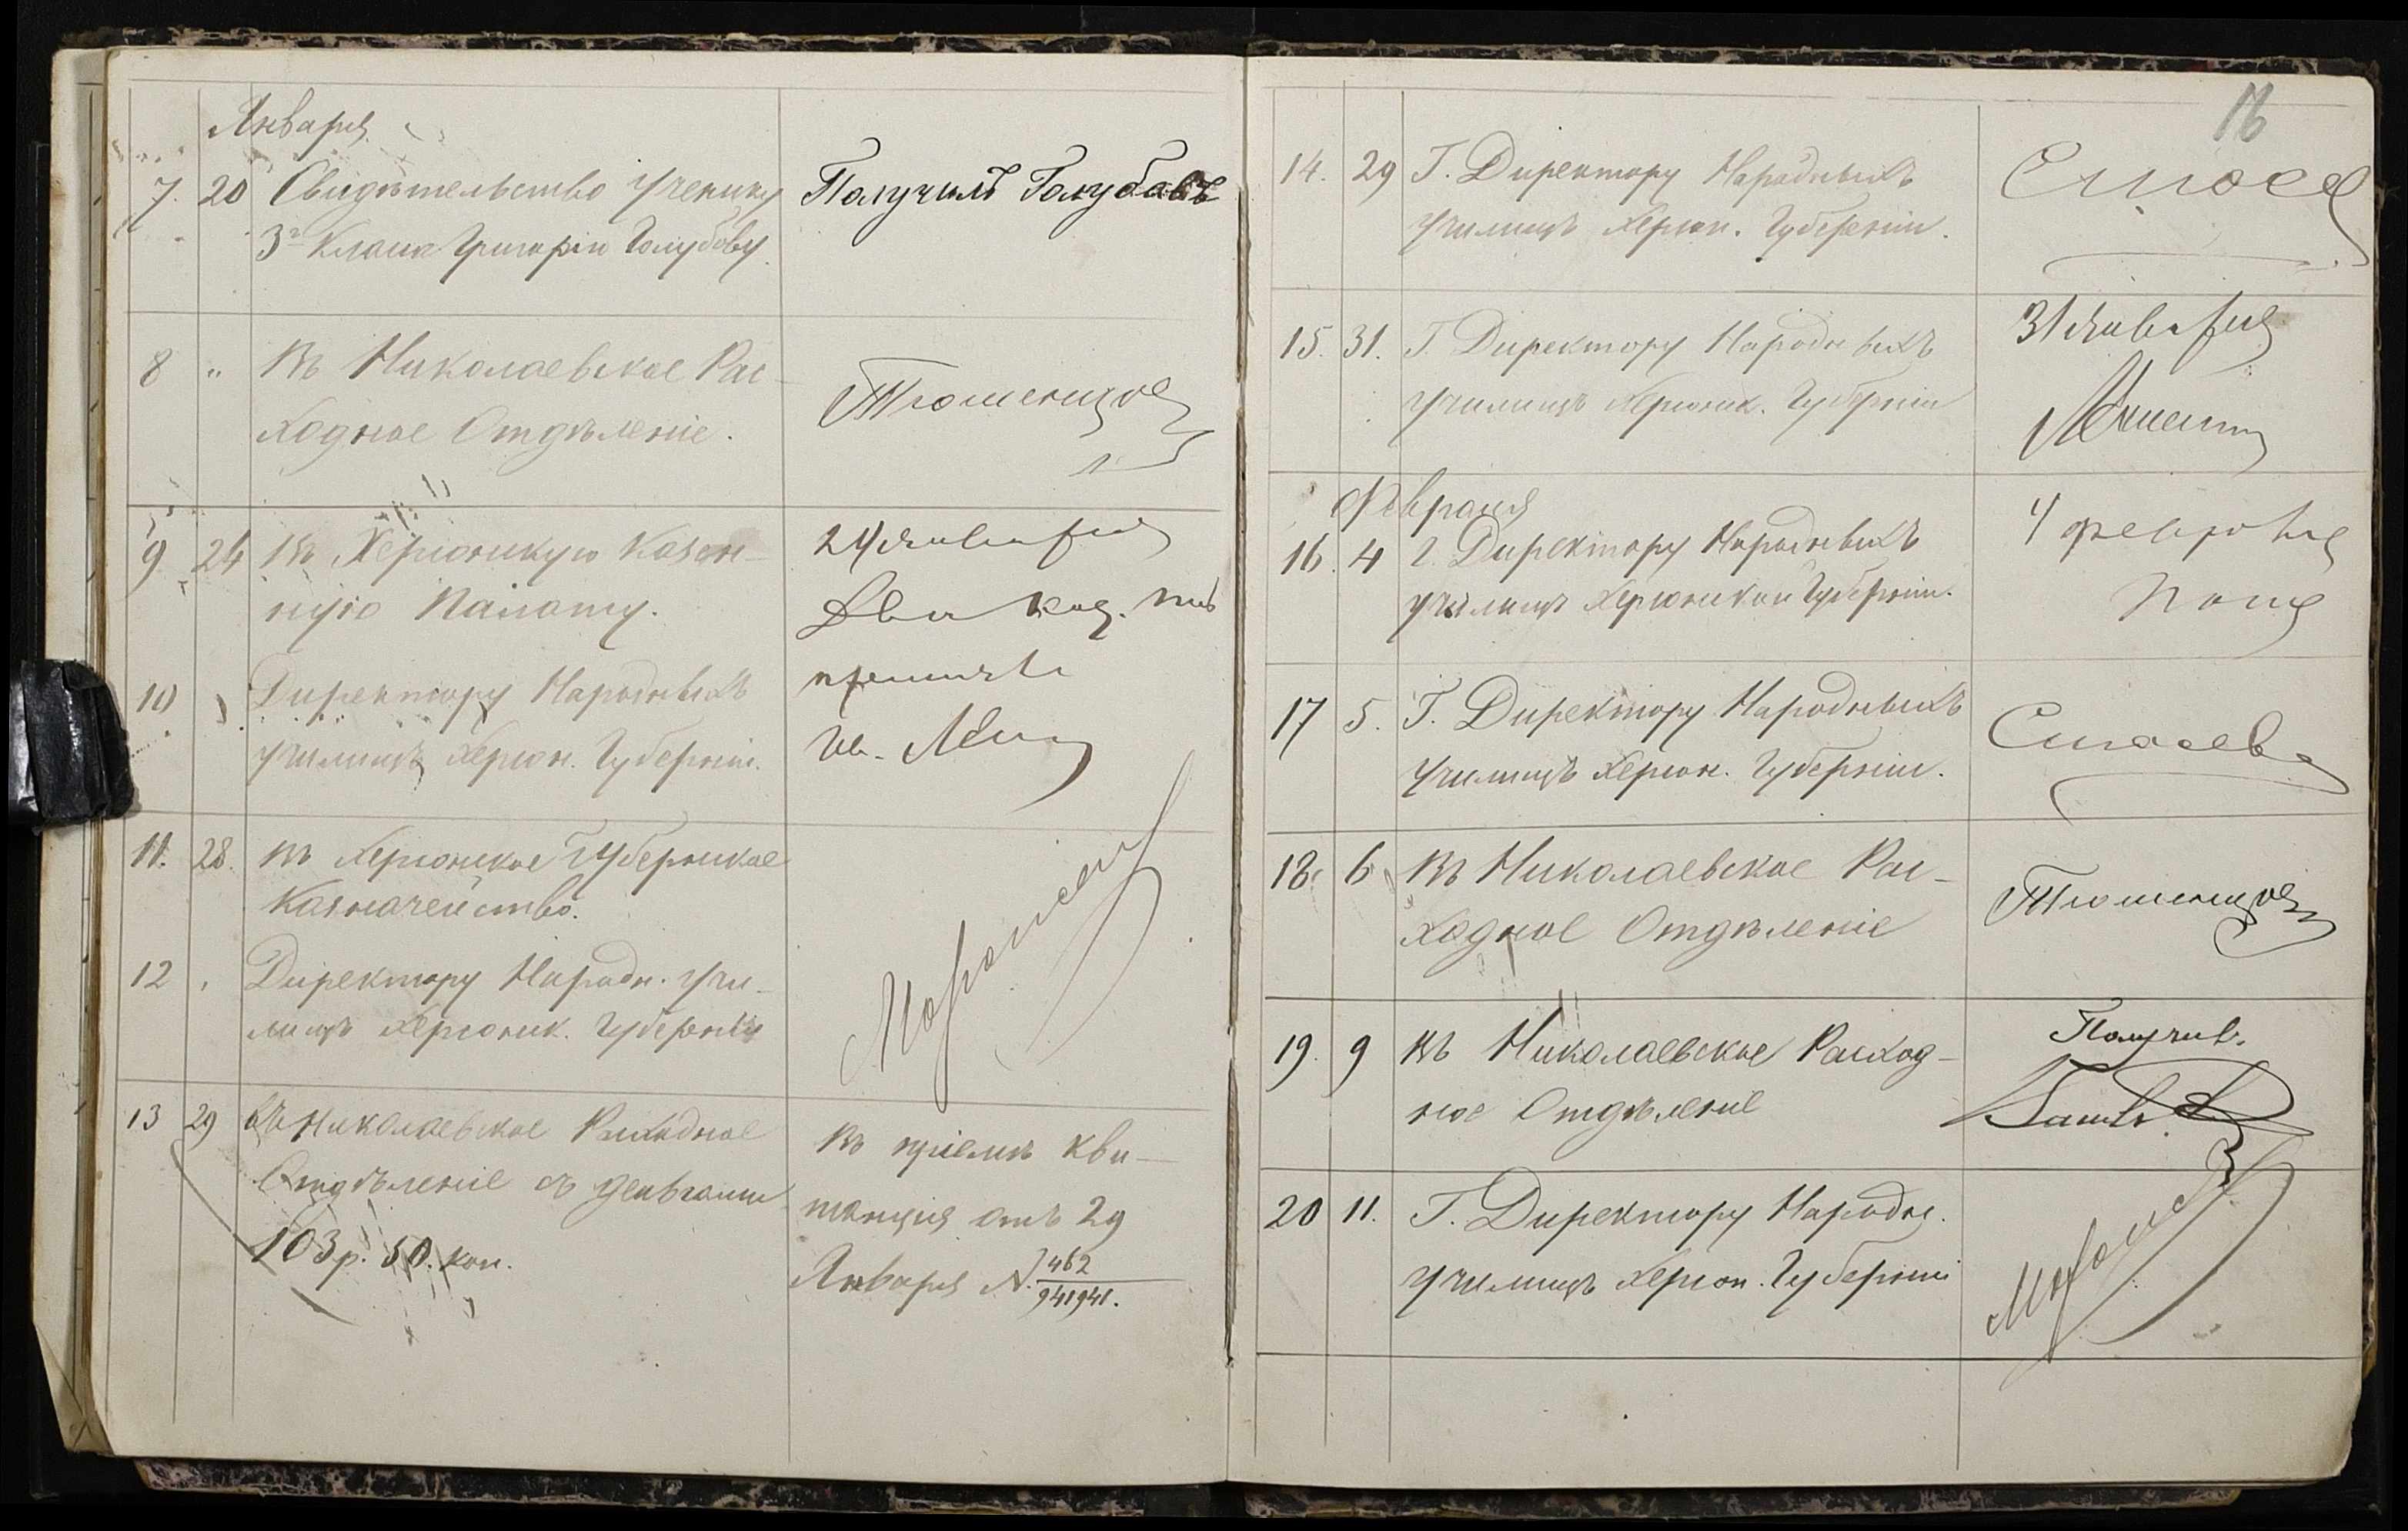 Января
7. 20 Свидѣтельство ученику
3го класса Григорію Голубову.
Получилъ Голубовъ
8 " Въ Николаевское Рас-
ходное Отдѣленіе.
Тюменцов
9 24 Въ Херсонскую Казен-
ную Палату.
24 Января
Два пак.
принялъ
10 " Директору Народныхъ
училищъ Херсон. Губерніи.
11. 28. Въ Херсонское Губернское
Казначейство.
12 " Директору Народн. Учи-
лищъ Херсонск. Губерніи
13 29 Въ Николаевское Расходное
Отдѣленіе съ деньгами
103 р. 50. коп.
въ пріемѣ кви-
танція отъ 29
Января N. 462
941941.
16
14. 29 Г. Директору Народныхъ
училищъ Херсон. Губерніи.
15. 31. Г. Директору Народныхъ
училищъ Херсонск. Губерніи
31 Января
Февраля
16. 4 Г. Директору Народныхъ
училищъ Херсонской Губерніи.
4 февраля
17 5. Г. Директору Народныхъ
училищъ Херсон. Губерніи.
18. 6 Въ Николаевское Рас-
ходное Отдѣленіе
Тюменцов
19. 9 Въ Николаевское Расход-
ное Отдѣленіе
Получив.
20 11. Г. Директору Народн.
училищъ Херсон. Губерніи